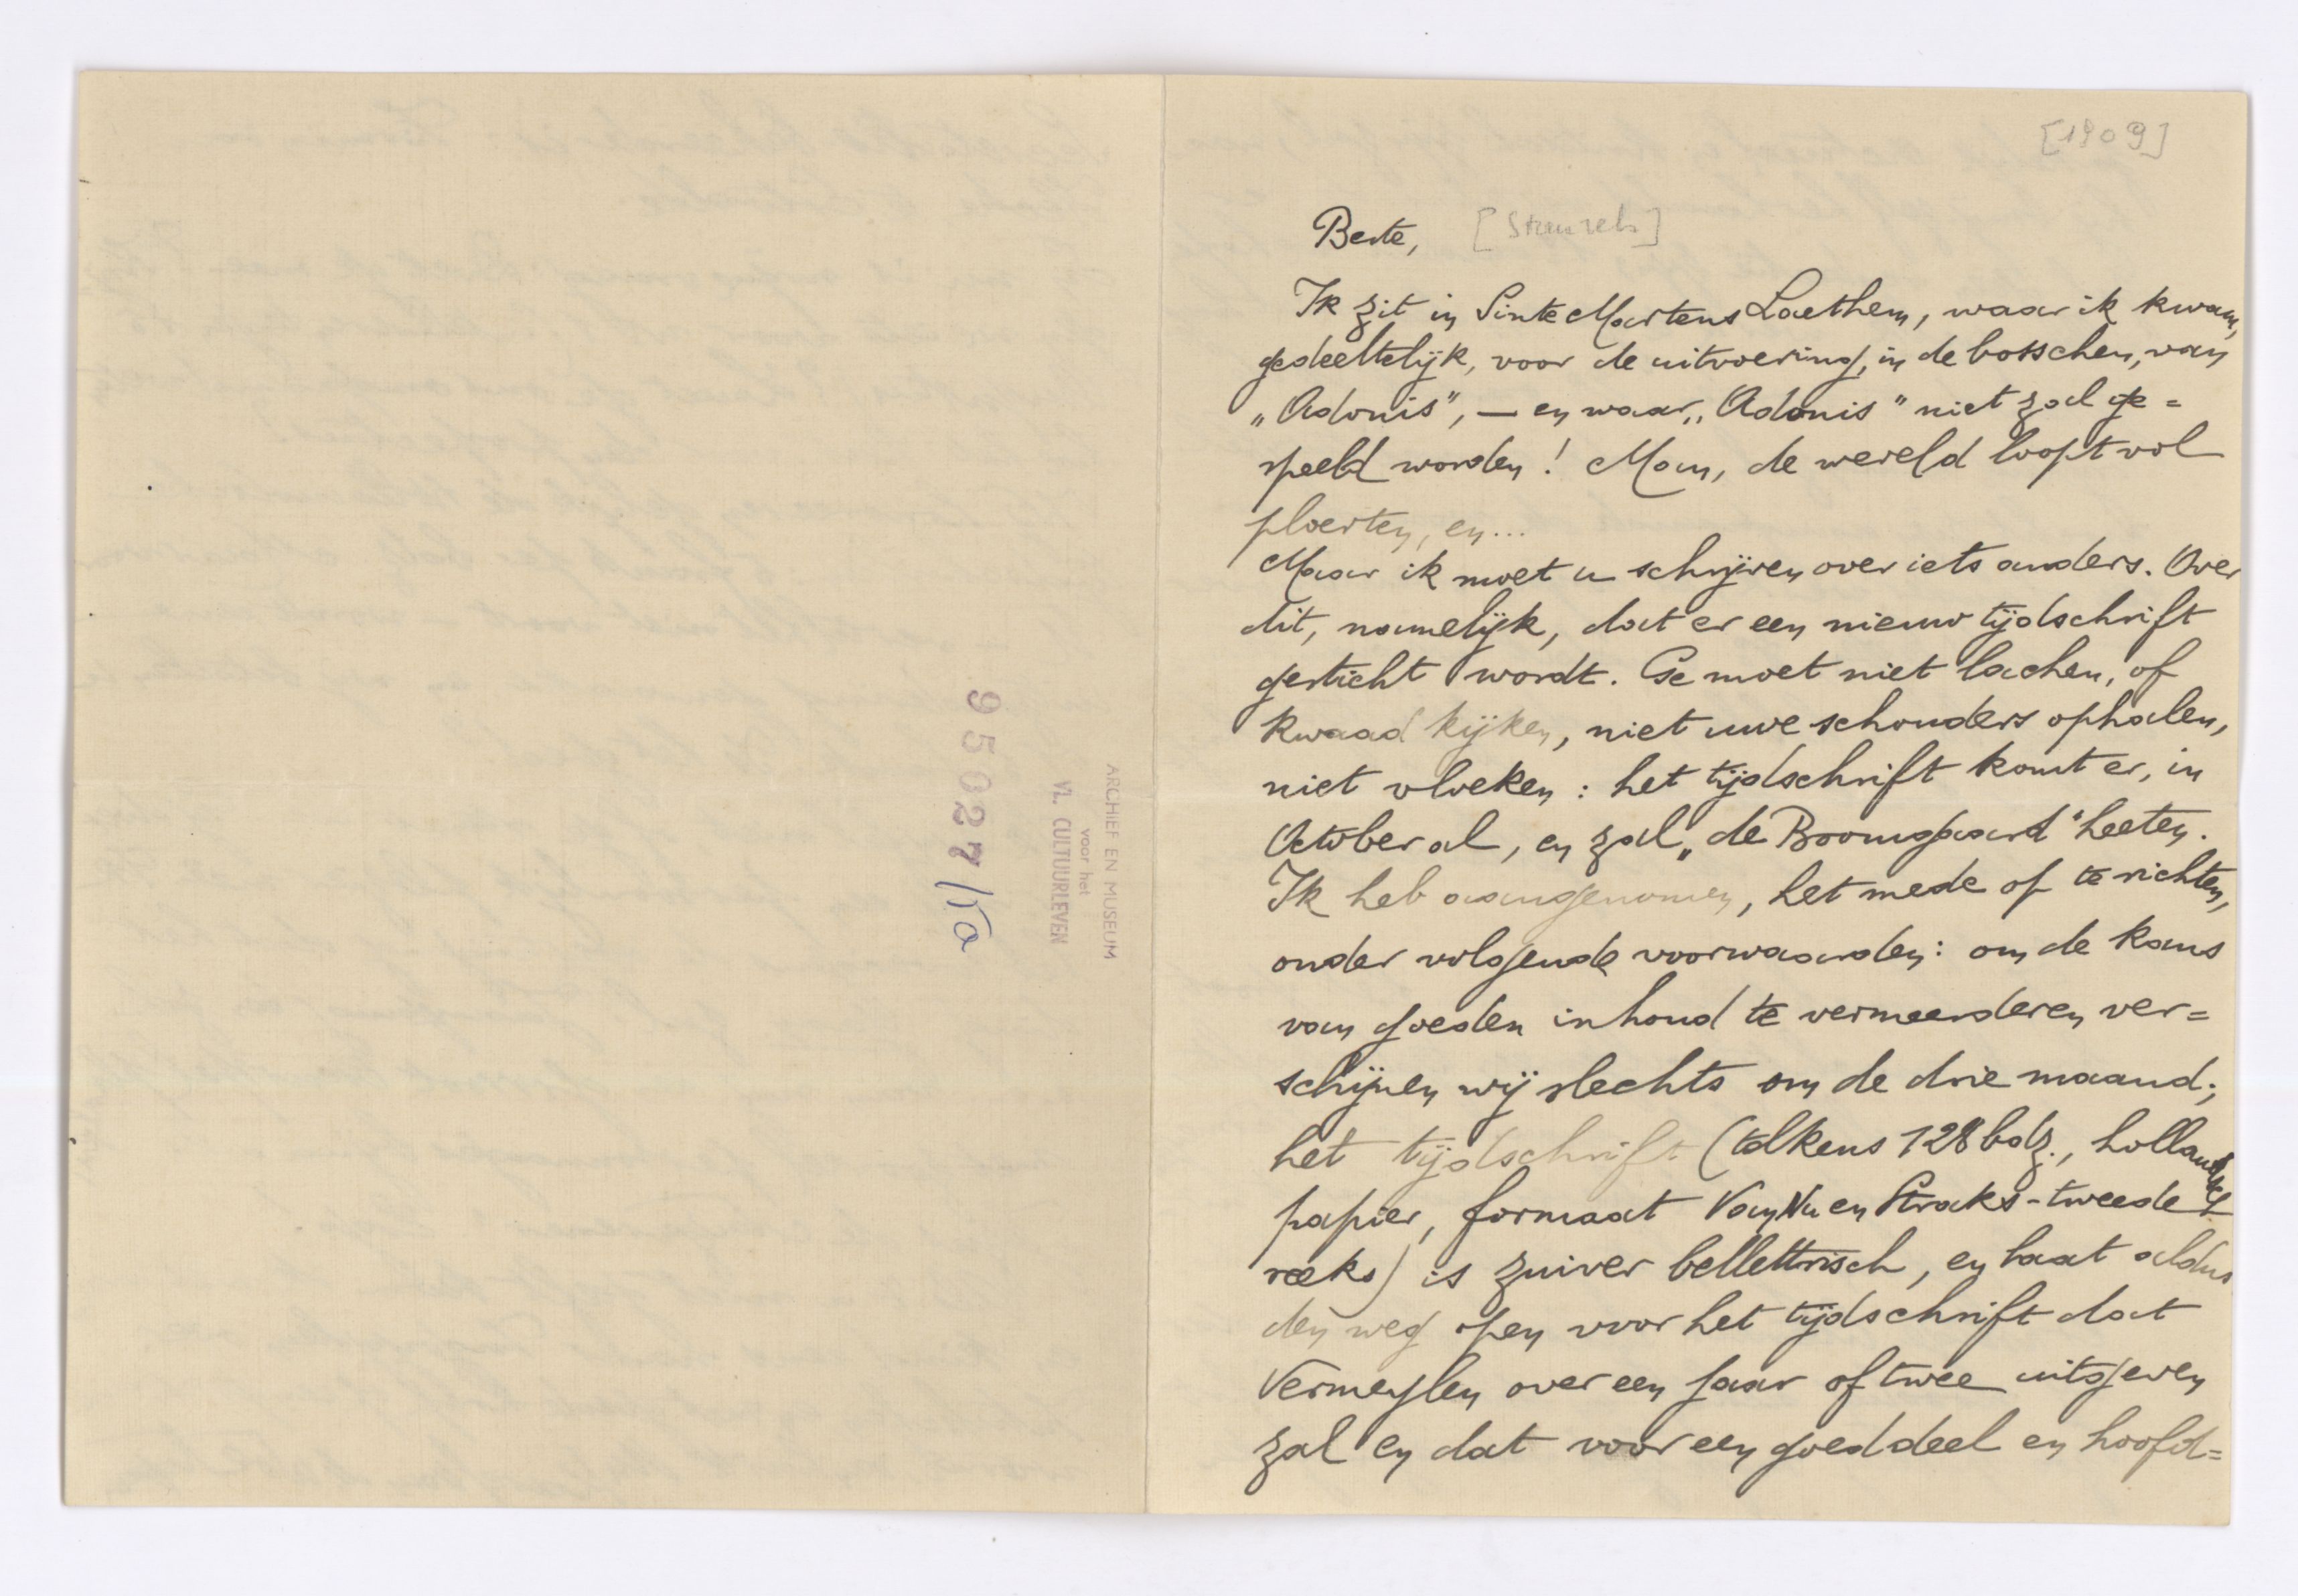 95027/10
ARCHIEF EN MUSEUM
voor het
VL. CULTUURLEVEN
[1909]
Beste, [Streuvels]
Ik zit in Sinte Martens Laethem, waar ik kwam,
gedeeltelijk, voor de uitvoering, in de bosschen, van
„Adonis", — en waar „Adonis" niet zal ge=
speeld worden! Man, de wereld loopt vol
ploerten, en...
Maar ik moet u schrijven over iets anders. Over
dit, namelijk, dat er een nieuw tijdschrift
gesticht wordt. Ge moet niet lachen, of
kwaad kijken, niet uwe schouders ophalen,
niet vloeken: het tijdschrift komt er, in
October al, en zal „de Boomgaard" heeten.
Ik heb aangenomen, het mede op te richten,
onder volgende voorwaarden: om de kans
van goeden inhoud te vermeerderen ver=
schijnen wij slechts om de drie maand;
het tijdschrift (telkens 128 bdz., hollandsch
papier, formaat Van Nu en Straks-tweede
reeks) is zuiver bellettrisch, en laat aldus
den weg open voor het tijdschrift dat
Vermeylen over een jaar of twee uitgeven
zal en dat voor een goed deel en hoofd=